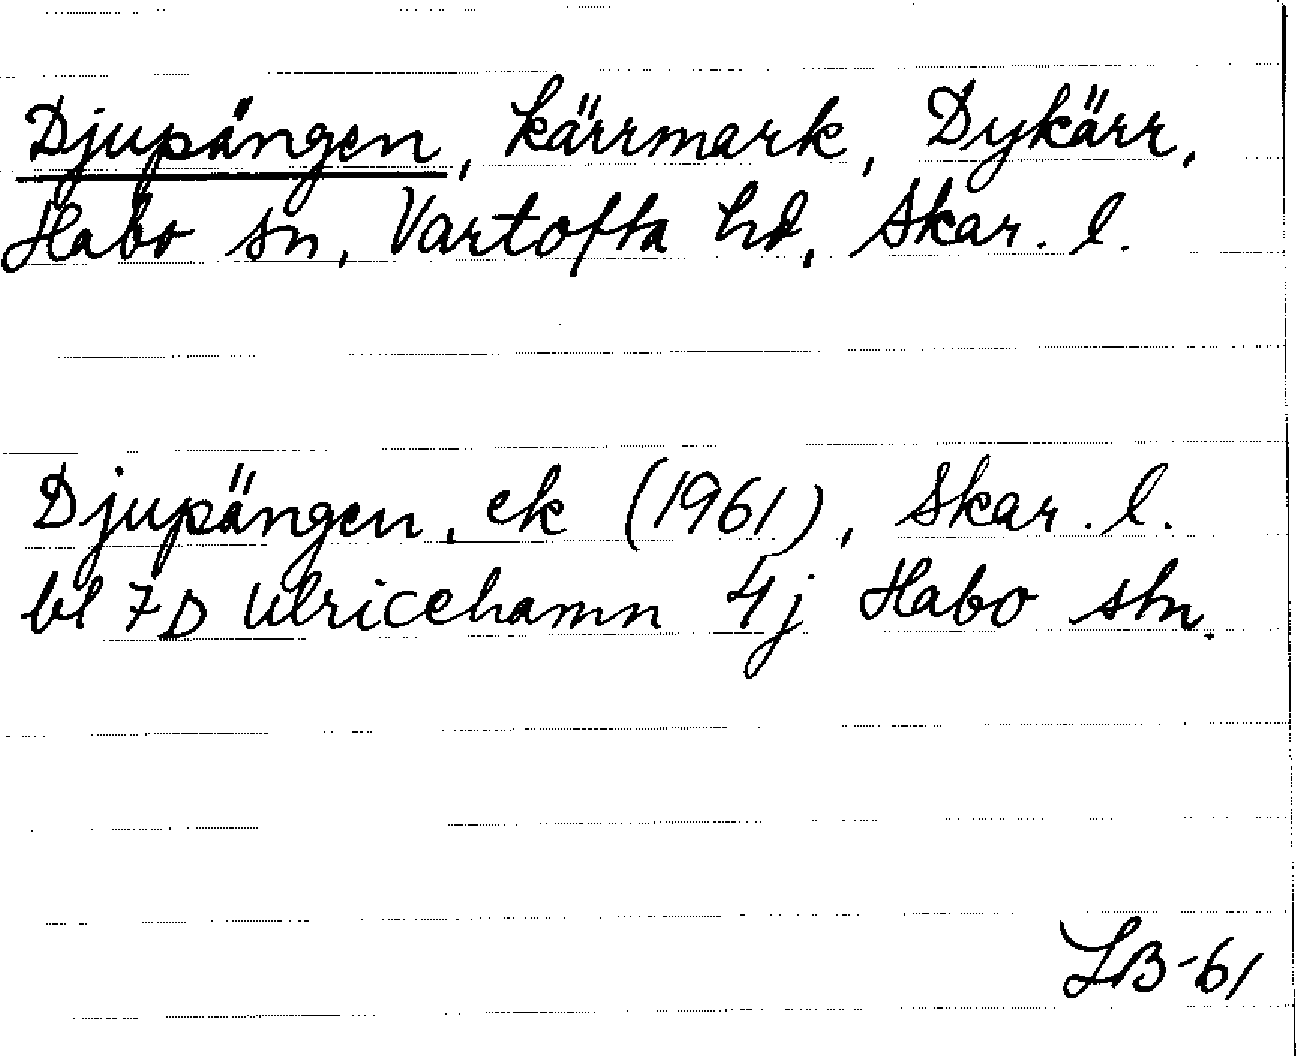 Djupängen, kärrmark, Dykärr,
Habo sn, Vartofta hd, Skar. l.
Djupängen, ek (1961), Skar. l.
bl 7D Ulricehamn 4j Habo stn.
LB-61